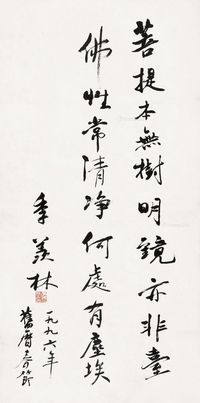 菩提本無樹明鏡亦非臺
佛性常清净何處有塵埃
季羨林
一九九六年
舊曆春節